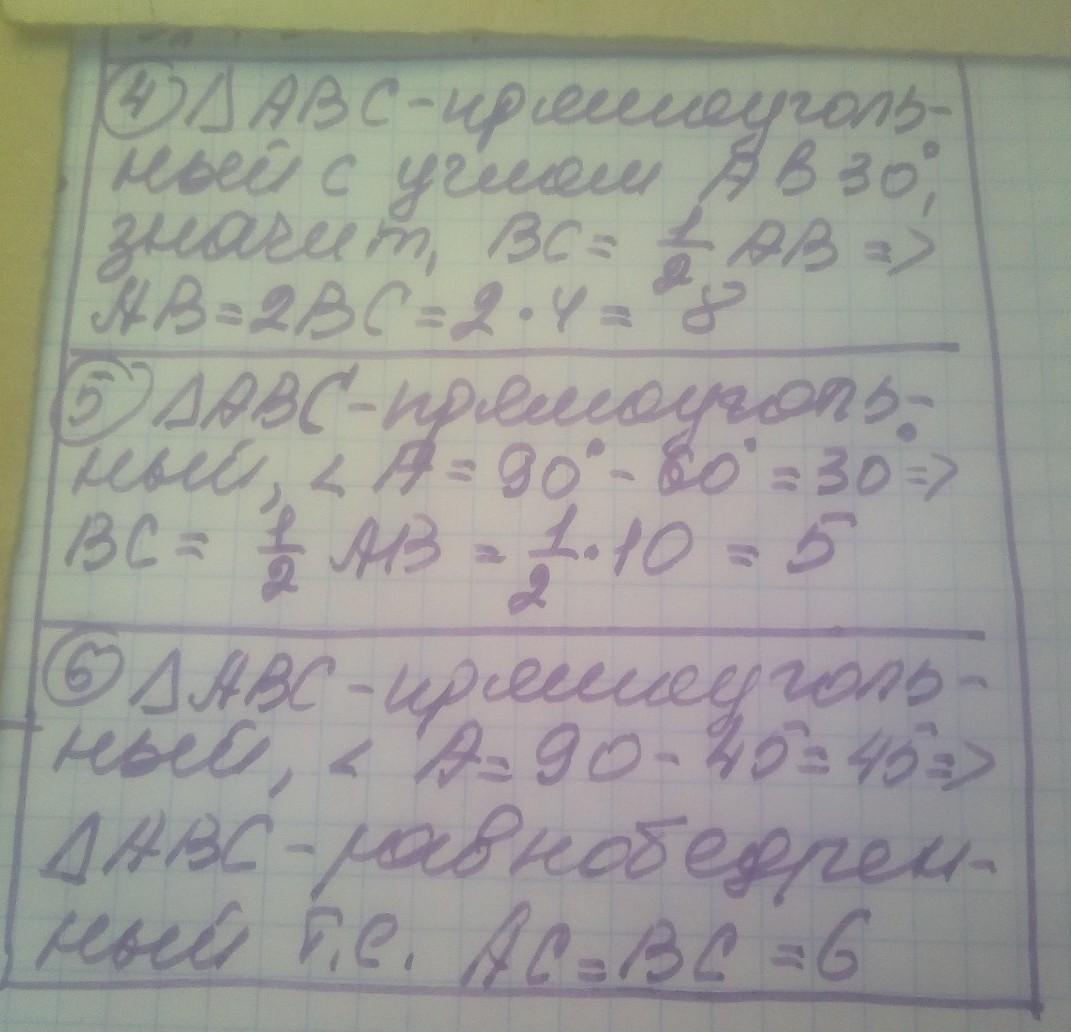 ④ ΔABC-прямоуголь-
ный с углом A в 30°,
значит, BC = 1/2 AB =>
AB = 2BC = 2·4 = 8
⑤ ΔABC-прямоуголь-
ный, < A = 90° - 60° = 30° =>
BC = 1/2 AB = 1/2·10 = 5
⑥ ΔABC-прямоуголь-
ный, < A = 90 - 45° = 45° =>
ΔABC-равнобедрен-
ный т.е. AC = BC = 6